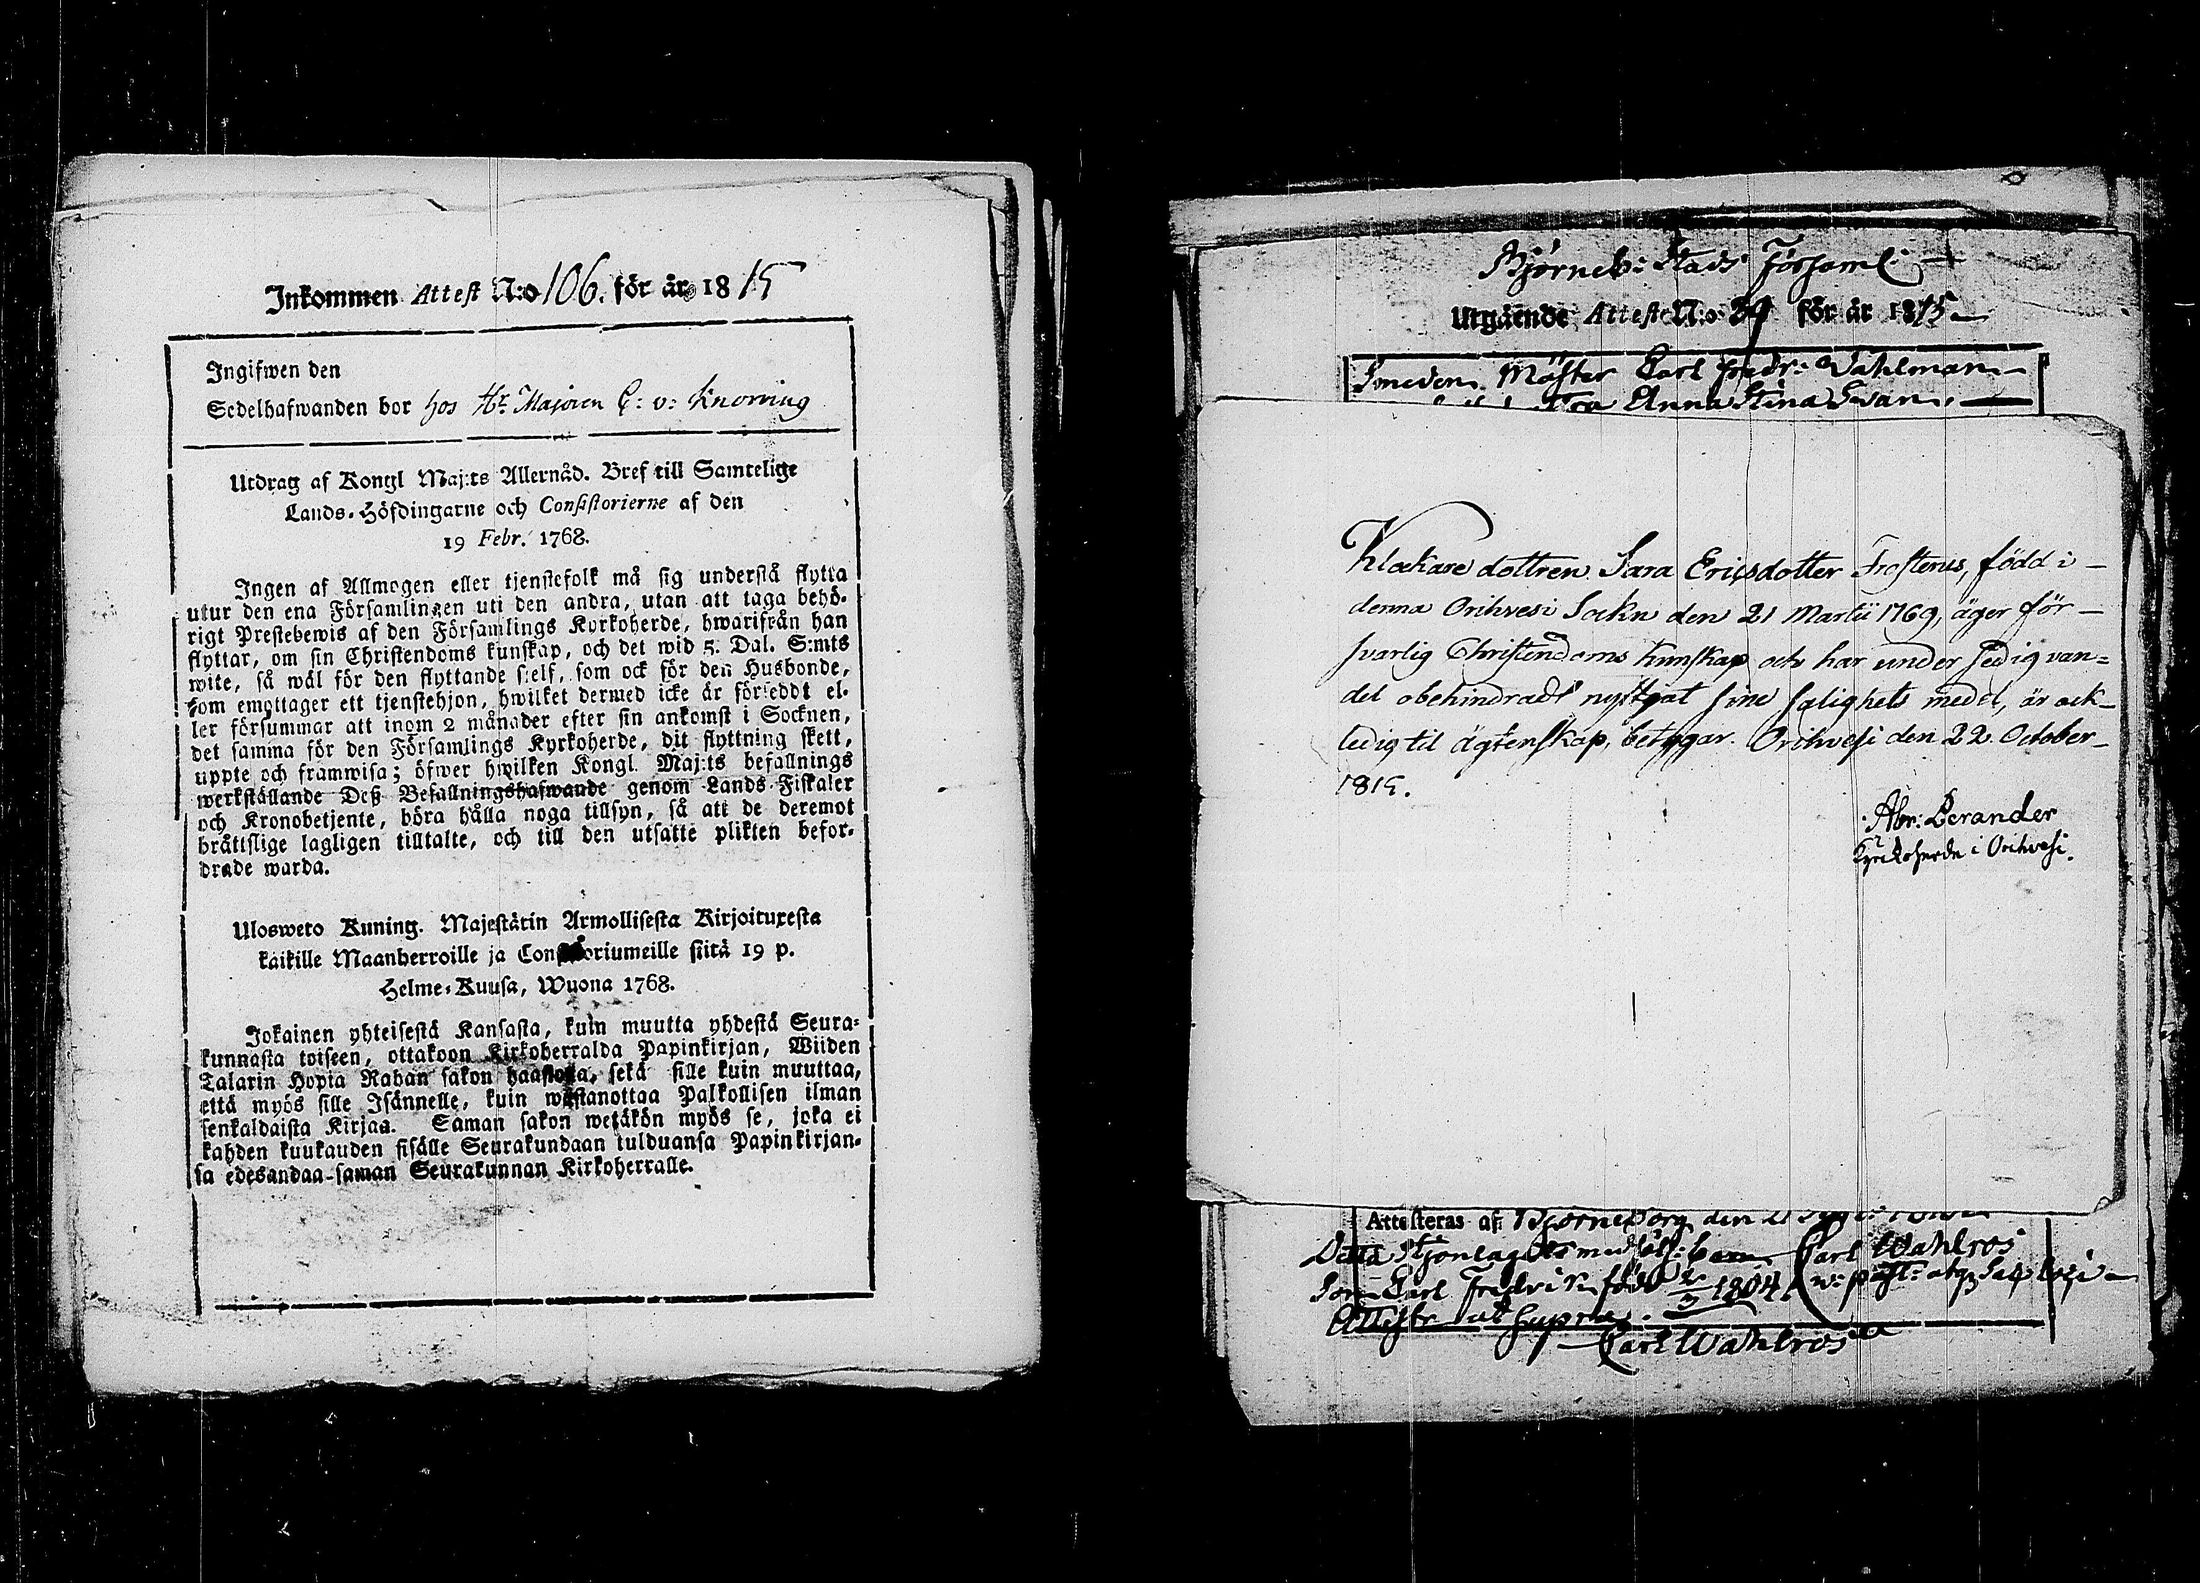 Inkommen Attest N:o 106. för år 1815
Ingifwen den
Sedelhafwanden bor hos Hr Majoren C: v: Knorring
Utdrag af Kongl Maj:ts Allernåd. Bref till Samtelige
Lands-Höfdingarne och Consistorierne af den
19 Febr. 1768.
Ingen af Allmogen eller tjenstefolk må sig understå flytta
utur den ena Församlingen uti den andra, utan att taga behö-
rigt Prestebewis af den Församlings Kyrkoherde, hwarifrån han
flyttar, om sin Christendoms kunskap, och det wid 5. Dal. S:mts
wite, så wäl för den flyttande sielf, som ock för den Husbonde,
som emottager ett tjenstehjon, hwilket dermed icke är försedt el-
ler försummar att inom 2 månader efter sin ankomst i Socknen,
det samma för den Församlings Kyrkoherde, dit flyttning skett,
uppte och framwisa; öfwer hwilken Kongl. Maj:ts befallnings
werkställande Deß Befallningshafwande genom Lands-Fiskaler
och Kronobetjente, böra hålla noga tillsyn, så att de deremot
bråttslige lagligen tilltalte, och till den utsatte plikten befor-
drade warda.
Ulosweto Kuning. Majestätin Armollisesta Kirjoituxesta
kaikille Maanherroille ja Consistoriumeille siitä 19 p.
Helme-Kuusa, Wuona 1768.
Jokainen yhteisestä Kansasta, kuin muutta yhdestä Seura-
kunnasta toiseen, ottakoon Kirkoherralda Papinkirjan, Wiiden
Talarin Hopia Rahan sakon haastolla, sekä sille kuin muuttaa,
että myös sille Isännelle, kuin wastanottaa Palkollisen ilman
senkaldaista Kirjaa. Saman sakon wetäkön myös se, joka ei
kahden kuukauden sisälle Seurakundaan tulduansa Papinkirjan-
sa edesandaa saman Seurakunnan Kirkoherralle.
Björneb: Stads Församl:
Utgående Attest N:o 39 för år 1815
Smeden Mäster Carl Fredr: Wahlman
Anna Stina Svan
Klockare dottren Sara Ericsdotter Frosterus, född i
denna Orihvesi Sockn den 21 Martii 1769, äger för-
svarlig Christendoms kunskap och har under sedig van-
del obehindradt nyttjat sine salighets medel, är ock
ledig til ägtenskap, betygar. Orihvesi den 22 October
1815.
Abr: Lerander
Kyrckoherde i Orihvesi.
Attesteras af: Björneborg den
Detta Carl Wahlros
Son Carl Fredrik född 1804
Attest: ut supra.
Carl Wahlros